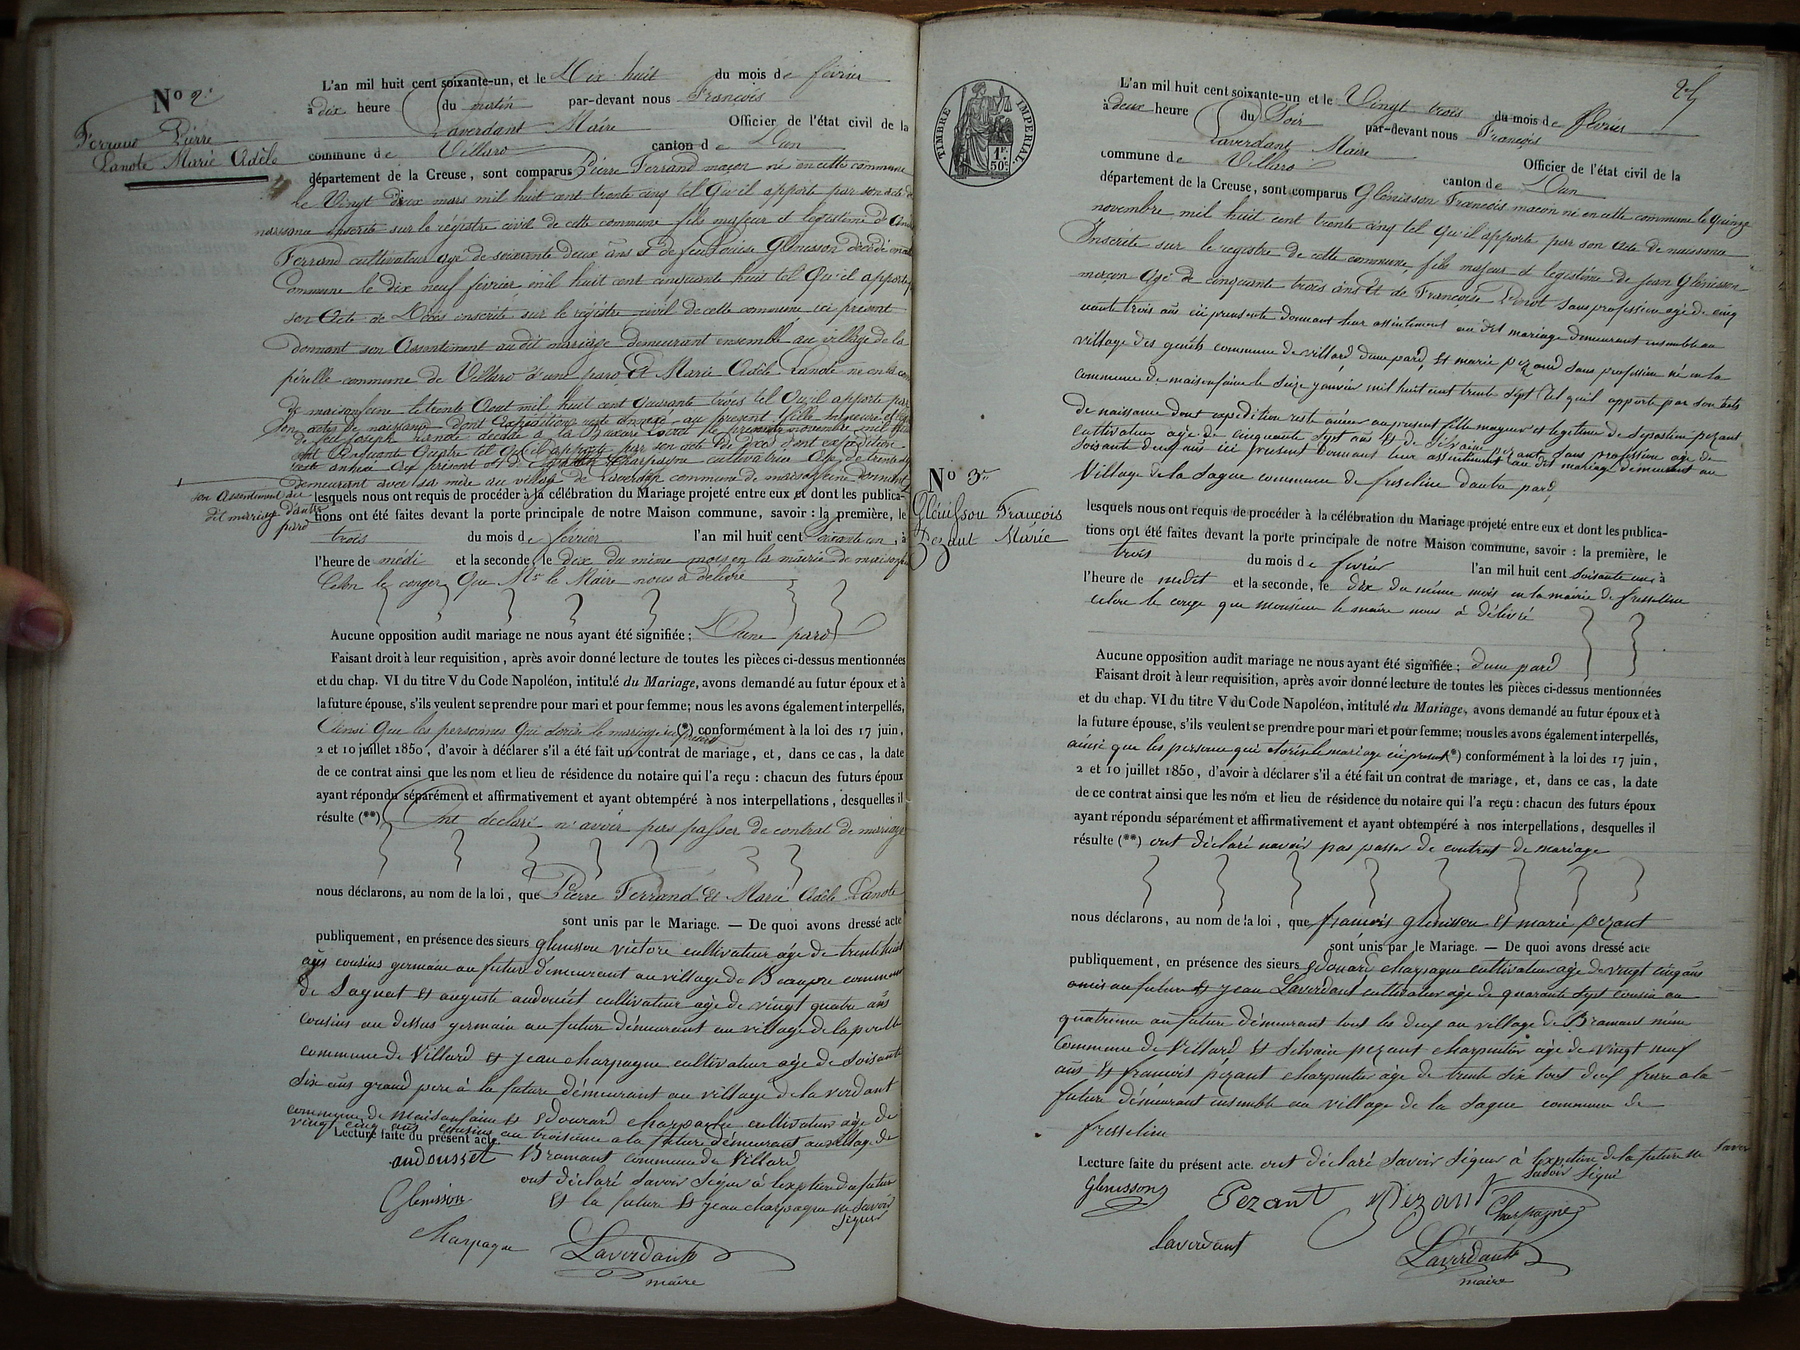 No 2
Ferrand Pierre
Lanote Marie Adèle
L'an mil huit cent soixante-un, et le Dix huit du mois de février
à dix heure du matin par-devant nous François
Laverdant Maire Officier de l'état civil de la
commune de Villard canton de Dun
département de la Creuse, sont comparus Pierre Ferrand maçon né en cette commune
le Vingt deux mars mil huit cent trente cinq tel qu'il apporte par son acte de
naissance inscrite sur le régistre civil de cette commune fils majeur et legistime d
Ferrand cultivateur agé de soixante deux ans et de feu Louise Glenisson décédé en
Commune le dix neuf février mil huit cent cinquante huit tel Qu'il apporte
son Acte de Décès inscrite sur le régistre civil de cette commune ici présent
Donnant son Assentiment au dit mariage demeurant ensemble au village de la
pérelle commune de Villard d'une pard Et Marie Adèle Lanote né en la
De maisonfeine le trente Aout mil huit cent quarante trois tel Qu'il apporte par
son acte de naissance dont Expédition reste annexé au présent fille mineure et
de feu Joseph Lanote décédé à la novembre mil
cent Cinquant Quatre tel qu'il apporte par son acte de décès dont expédition
reste annexé au présent et de Charpagne cultivatrice age de trente
demeurant avec sa mère au village de Laverdan commune de maisonfeine donnant
son Assentiment au
dit marriage d'autre
pard
lesquels nous ont requis de procéder à la célébration du Mariage projeté entre eux et dont les publica-
tions ont été faites devant la porte principale de notre Maison commune, savoir : la première, le
trois du mois de février l'an mil huit cent soixante un, à
l'heure de médi et la seconde, le dix du même mois en la mairie de maisonf
Celon le Que Mr le Maire nous a délivré
Aucune opposition audit mariage ne nous ayant été signifiée; Dune pard
Faisant droit à leur requisition, après avoir donné lecture de toutes les pièces ci-dessus mentionnées
et du chap. VI du titre V du Code Napoléon, intitulé du Mariage, avons demandé au futur époux et à
la future épouse, s'ils veulent se prendre pour mari et pour femme; nous les avons également interpellés,
Ainsi Que les personnes Qui le mariage ici présent (*) conformément à la loi des 17 juin,
2 et 10 juillet 1850, d'avoir à déclarer s'il a été fait un contrat de mariage, et, dans ce cas, la date
de ce contrat ainsi que les nom et lieu de résidence du notaire qui l'a reçu : chacun des futurs époux
ayant répondu séparément et affirmativement et ayant obtempéré à nos interpellations, desquelles il
résulte (**) Ont declaré n'avoir pas passer de contrat de mariage
nous déclarons, au nom de la loi, que Pierre Ferrand Et Marie Adèle Lanote
sont unis par le Mariage. — De quoi avons dressé acte
publiquement, en présence des sieurs glenisson victore cultivateur âgé de trente huit
ans cousins germain au future demeurant au village de Beaupre commune
de Sagnat Et auguste audouset cultivateur agé de vingt quatre ans
cousins au dessus germain au future démeurant au village de la perelle
commune de Villard Et jean charpagne cultivateur agé de soisante
dix ans grand pere à la future démeurant au village de la verdant
commune de maisonfaine Et Edouard charpagne cultivateur agé de
vingt cinq ans cousins au troisieme a la future démeurant au village de
Lecture faite du présent acte
Bramant commune de Villard
ont déclaré savoir signer à lexption du futur
Et la future Et jean charpagne ne savoir
signer
audousset
Glenisson
Charpagne
Laverdant
maire
25
TIMBRE IMPÉRIAL
1F.
50c
L'an mil huit cent soixante-un et le Vingt trois du mois de février
à deux heure du Soir par-devant nous François
Laverdant Maire Officier de l'état civil de la
commune de Villard canton de Dun
département de la Creuse, sont comparus Glénisson François maçon né en cette commune le Quinze
novembre mil huit cent trente cinq tel Qu'il apporte par son Acte de naissance
Inscrite sur le regestre de cette commune, fils majeur et legistime de jean Glénisson
maçon Agé de cinquante trois ans Et de Françoise Penot sans profession agé de cinq
uante trois ans ici présente donnant leur assintement au dit mariage demeurant ensemble au
village des genêts commune de villard dune pard, Et marie pezand sans profession né en la
commune de maisonfaine le seize janvier mil huit cent trente sept tel quil apporte par son acte
de naissance dont expedition reste annexé au présent fille majeure et legitime de sepastien pezant
cultivateur agé de cinquante sept ans Et de silvaine pezant sans profession agé de
soisante deux ans ici présent donnant leur assentiment au dit mariage démeurant au
Village de la Sagne commune de fresseline dautre pard,
No 3
Glénisson François
Pezant Marie
lesquels nous ont requis de procéder à la célébration du Mariage projeté entre eux et dont les publica-
tions ont été faites devant la porte principale de notre Maison commune, savoir : la première, le
trois du mois de février l'an mil huit cent soisante un à
l'heure de medit et la seconde, le dix du même mois en la mairie de fresseline
celon le que monsieur le maire nous à délivré
Aucune opposition audit mariage ne nous ayant été signifiée; dune pard
Faisant droit à leur requisition, après avoir donné lecture de toutes les pièces ci-dessus mentionnées
et du chap. VI du titre V du Code Napoléon, intitulé du Mariage, avons demandé au futur époux et à
la future épouse, s'ils veulent se prendre pour mari et pour femme; nous les avons également interpellés,
ainsi que les persone qui le mariage ici présent (*) conformément à la loi des 17 juin,
2 et 10 juillet 1850, d'avoir à déclarer s'il a été fait un contrat de mariage, et, dans ce cas, la date
de ce contrat ainsi que les nom et lieu de résidence du notaire qui l'a reçu : chacun des futurs époux
ayant répondu séparément et affirmativement et ayant obtempéré à nos interpellations, desquelles il
résulte (**) ont déclaré navoir pas passer de contrat de mariage
nous déclarons, au nom de la loi, que francois glenisson Et marie pezant
sont unis par le Mariage. — De quoi avons dressé acte
publiquement, en présence des sieurs edouard charpagne cultivateur agé de vingt cinq ans
amis au future Et jean Laverdant cultivateur agé de quarante sept cousin au
quatrieme au future démeurant tout les deux au village de Bramant même
Commune de Villard Et silvain pezant charpentier agé de vingt neuf
ans Et francois pezant charpentier agé de trente six tout deux frere a la
future démeurant ensemble au village de la Sagne commune de
fresseline
Lecture faite du présent acte. ont déclaré savoir signer à lexption de la future ne savoir
savoir signé
Glenisson Pezant Pezant Charpagne
laverdant Laverdant
maire